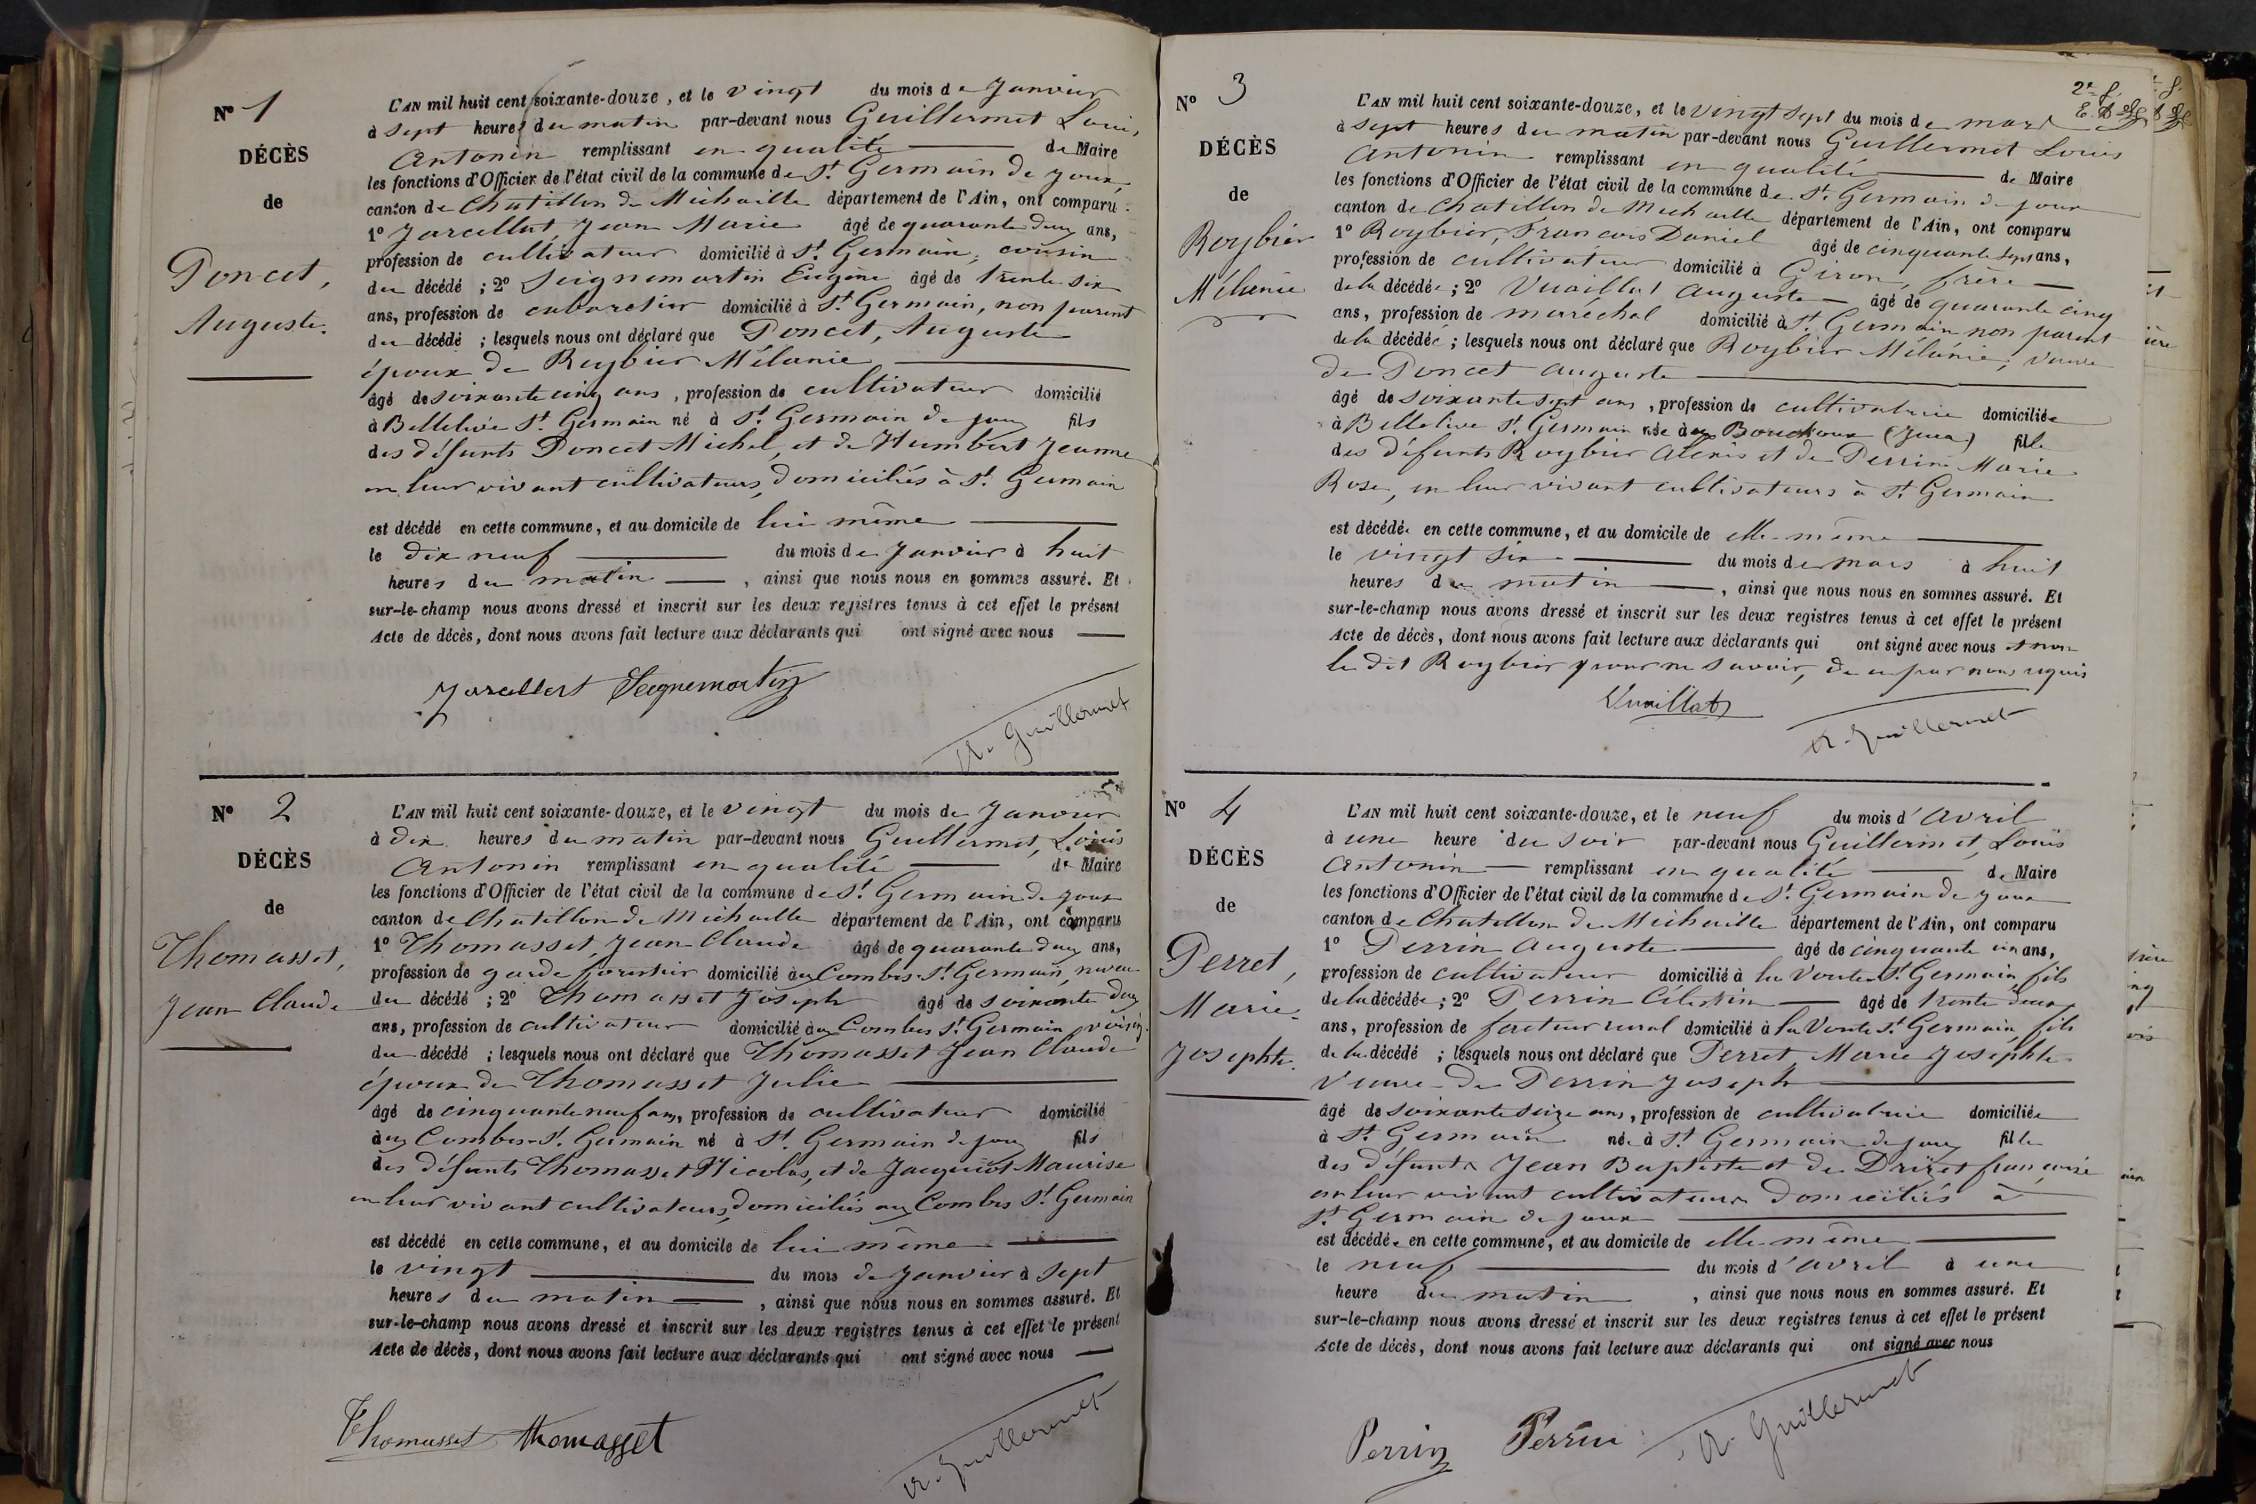 Nº 1
DÉCÈS
de
Poncet,
Auguste.
L'AN mil huit cent soixante-douze, et le vingt du mois de Janvier
à sept heures du matin par-devant nous Guillermet Louis
Antonin remplissant en qualité de Maire
les fonctions d'Officier de l'état civil de la commune de St Germain de Joux,
canton de Chatillon de Michaille département de l'Ain, ont comparu
1º Jarcellat, Jean Marie âgé de quarante deux ans,
profession de cultivateur domicilié à St Germain, cousin
du décédé ; 2º Seignemartin Eugène âgé de trente six
ans, profession de cabaretier domicilié à St Germain, non parent
du décédé ; lesquels nous ont déclaré que Poncet, Auguste
époux de Roybier Mélanie
âgé de soixante cinq ans, profession de cultivateur domicilié
à Bellelive St Germain né à St Germain de Joux fils
des défunts Poncet Michel, et de Humbert Jeanne
en leur vivant cultivateurs, domiciliés à St Germain
est décédé en cette commune, et au domicile de lui même
le dix neuf du mois de Janvier à huit
heures du matin, ainsi que nous nous en sommes assuré. Et
sur-le-champ nous avons dressé et inscrit sur les deux registres tenus à cet effet le présent
Acte de décès, dont nous avons fait lecture aux déclarants qui ont signé avec nous
Jarcellat Seignemartin
A. Guillermet
Nº 2
DÉCÈS
de
Thomasset,
Jean Claude
L'AN mil huit cent soixante-douze, et le vingt du mois de Janvier
à dix heures du matin par-devant nous Guillermet, Louis
Antonin remplissant en qualité de Maire
les fonctions d'Officier de l'état civil de la commune de St Germain de Joux
canton de Chatillon de Michaille département de l'Ain, ont comparu
1º Thomasset, Jean Claude âgé de quarante deux ans,
profession de garde forestier domicilié aux Combes St Germain, neveu
du décédé ; 2º Thomasset Joseph âgé de soixante deux
ans, profession de cultivateur domicilié aux Combes St Germain, voisin
du décédé ; lesquels nous ont déclaré que Thomasset Jean Claude
époux de Thomasset Julie
âgé de cinquante neuf ans, profession de cultivateur domicilié
aux Combes St Germain né à St Germain de Joux fils
des défunts Thomasset Nicolas, et de Jacquiot Maurise
en leur vivant cultivateurs, domiciliés aux Combes St Germain
est décédé en cette commune, et au domicile de lui même
le vingt du mois de Janvier à sept
heures du matin, ainsi que nous nous en sommes assuré. Et
sur-le-champ nous avons dressé et inscrit sur les deux registres tenus à cet effet le présent
Acte de décès, dont nous avons fait lecture aux déclarants qui ont signé avec nous
Thomasset Thomasset
A. Guillermet
2e f.
Nº 3
DÉCÈS
de
Roybier
Mélanie
L'AN mil huit cent soixante-douze, et le vingt sept du mois de mars
à sept heures du matin par-devant nous Guillermet Louis
Antonin remplissant en qualité de Maire
les fonctions d'Officier de l'état civil de la commune de St Germain de Joux
canton de Chatillon de Michaille département de l'Ain, ont comparu
1º Roybier, François Daniel âgé de cinquante sept ans,
profession de cultivateur domicilié à Giron, frère
de la décédée ; 2º Vuaillat Auguste âgé de quarante cinq
ans, profession de maréchal domicilié à St Germain non parent
de la décédée ; lesquels nous ont déclaré que Roybier Mélanie, veuve
de Poncet Auguste
âgé de soixante sept ans, profession de cultivatrice domiciliée
à Bellelive St Germain née aux Bouchoux (Jura) fille
des défunts Roybier Alexis et de Perrin Marie
Rose, en leur vivant cultivateurs à St Germain
est décédée en cette commune, et au domicile de elle-même
le vingt six du mois de mars à huit
heures du matin, ainsi que nous nous en sommes assuré. Et
sur-le-champ nous avons dressé et inscrit sur les deux registres tenus à cet effet le présent
Acte de décès, dont nous avons fait lecture aux déclarants qui ont signé avec nous et non
le dit Roybier pour ne savoir, de ce par nous requis
Vuaillat
A. Guillermet
Nº 4
DÉCÈS
de
Perret,
Marie
Josephte.
L'AN mil huit cent soixante-douze, et le neuf du mois d'avril
à une heure du soir par-devant nous Guillermet, Louis
Antonin remplissant en qualité de Maire
les fonctions d'Officier de l'état civil de la commune de St Germain de Joux
canton de Chatillon de Michaille département de l'Ain, ont comparu
1º Perrin Auguste âgé de cinquante un ans,
profession de cultivateur domicilié à la Voute St Germain, fils
de la décédée ; 2º Perrin Célestin âgé de trente deux
ans, profession de facteur rural domicilié à la Voute St Germain, fils
de la décédé ; lesquels nous ont déclaré que Perret Marie Josephte
veuve de Perrin Joseph
âgé de soixante seize ans, profession de cultivatrice domiciliée
à St Germain née à St Germain de Joux fille
des défunts Jean Baptiste et de Drizet françoise
en leur vivant cultivateurs domiciliés à
St Germain de Joux
est décédée en cette commune, et au domicile de elle même
le neuf du mois d'avril à une
heure du matin, ainsi que nous nous en sommes assuré. Et
sur-le-champ nous avons dressé et inscrit sur les deux registres tenus à cet effet le présent
Acte de décès, dont nous avons fait lecture aux déclarants qui ont signé avec nous
Perrin Perrin
A. Guillermet